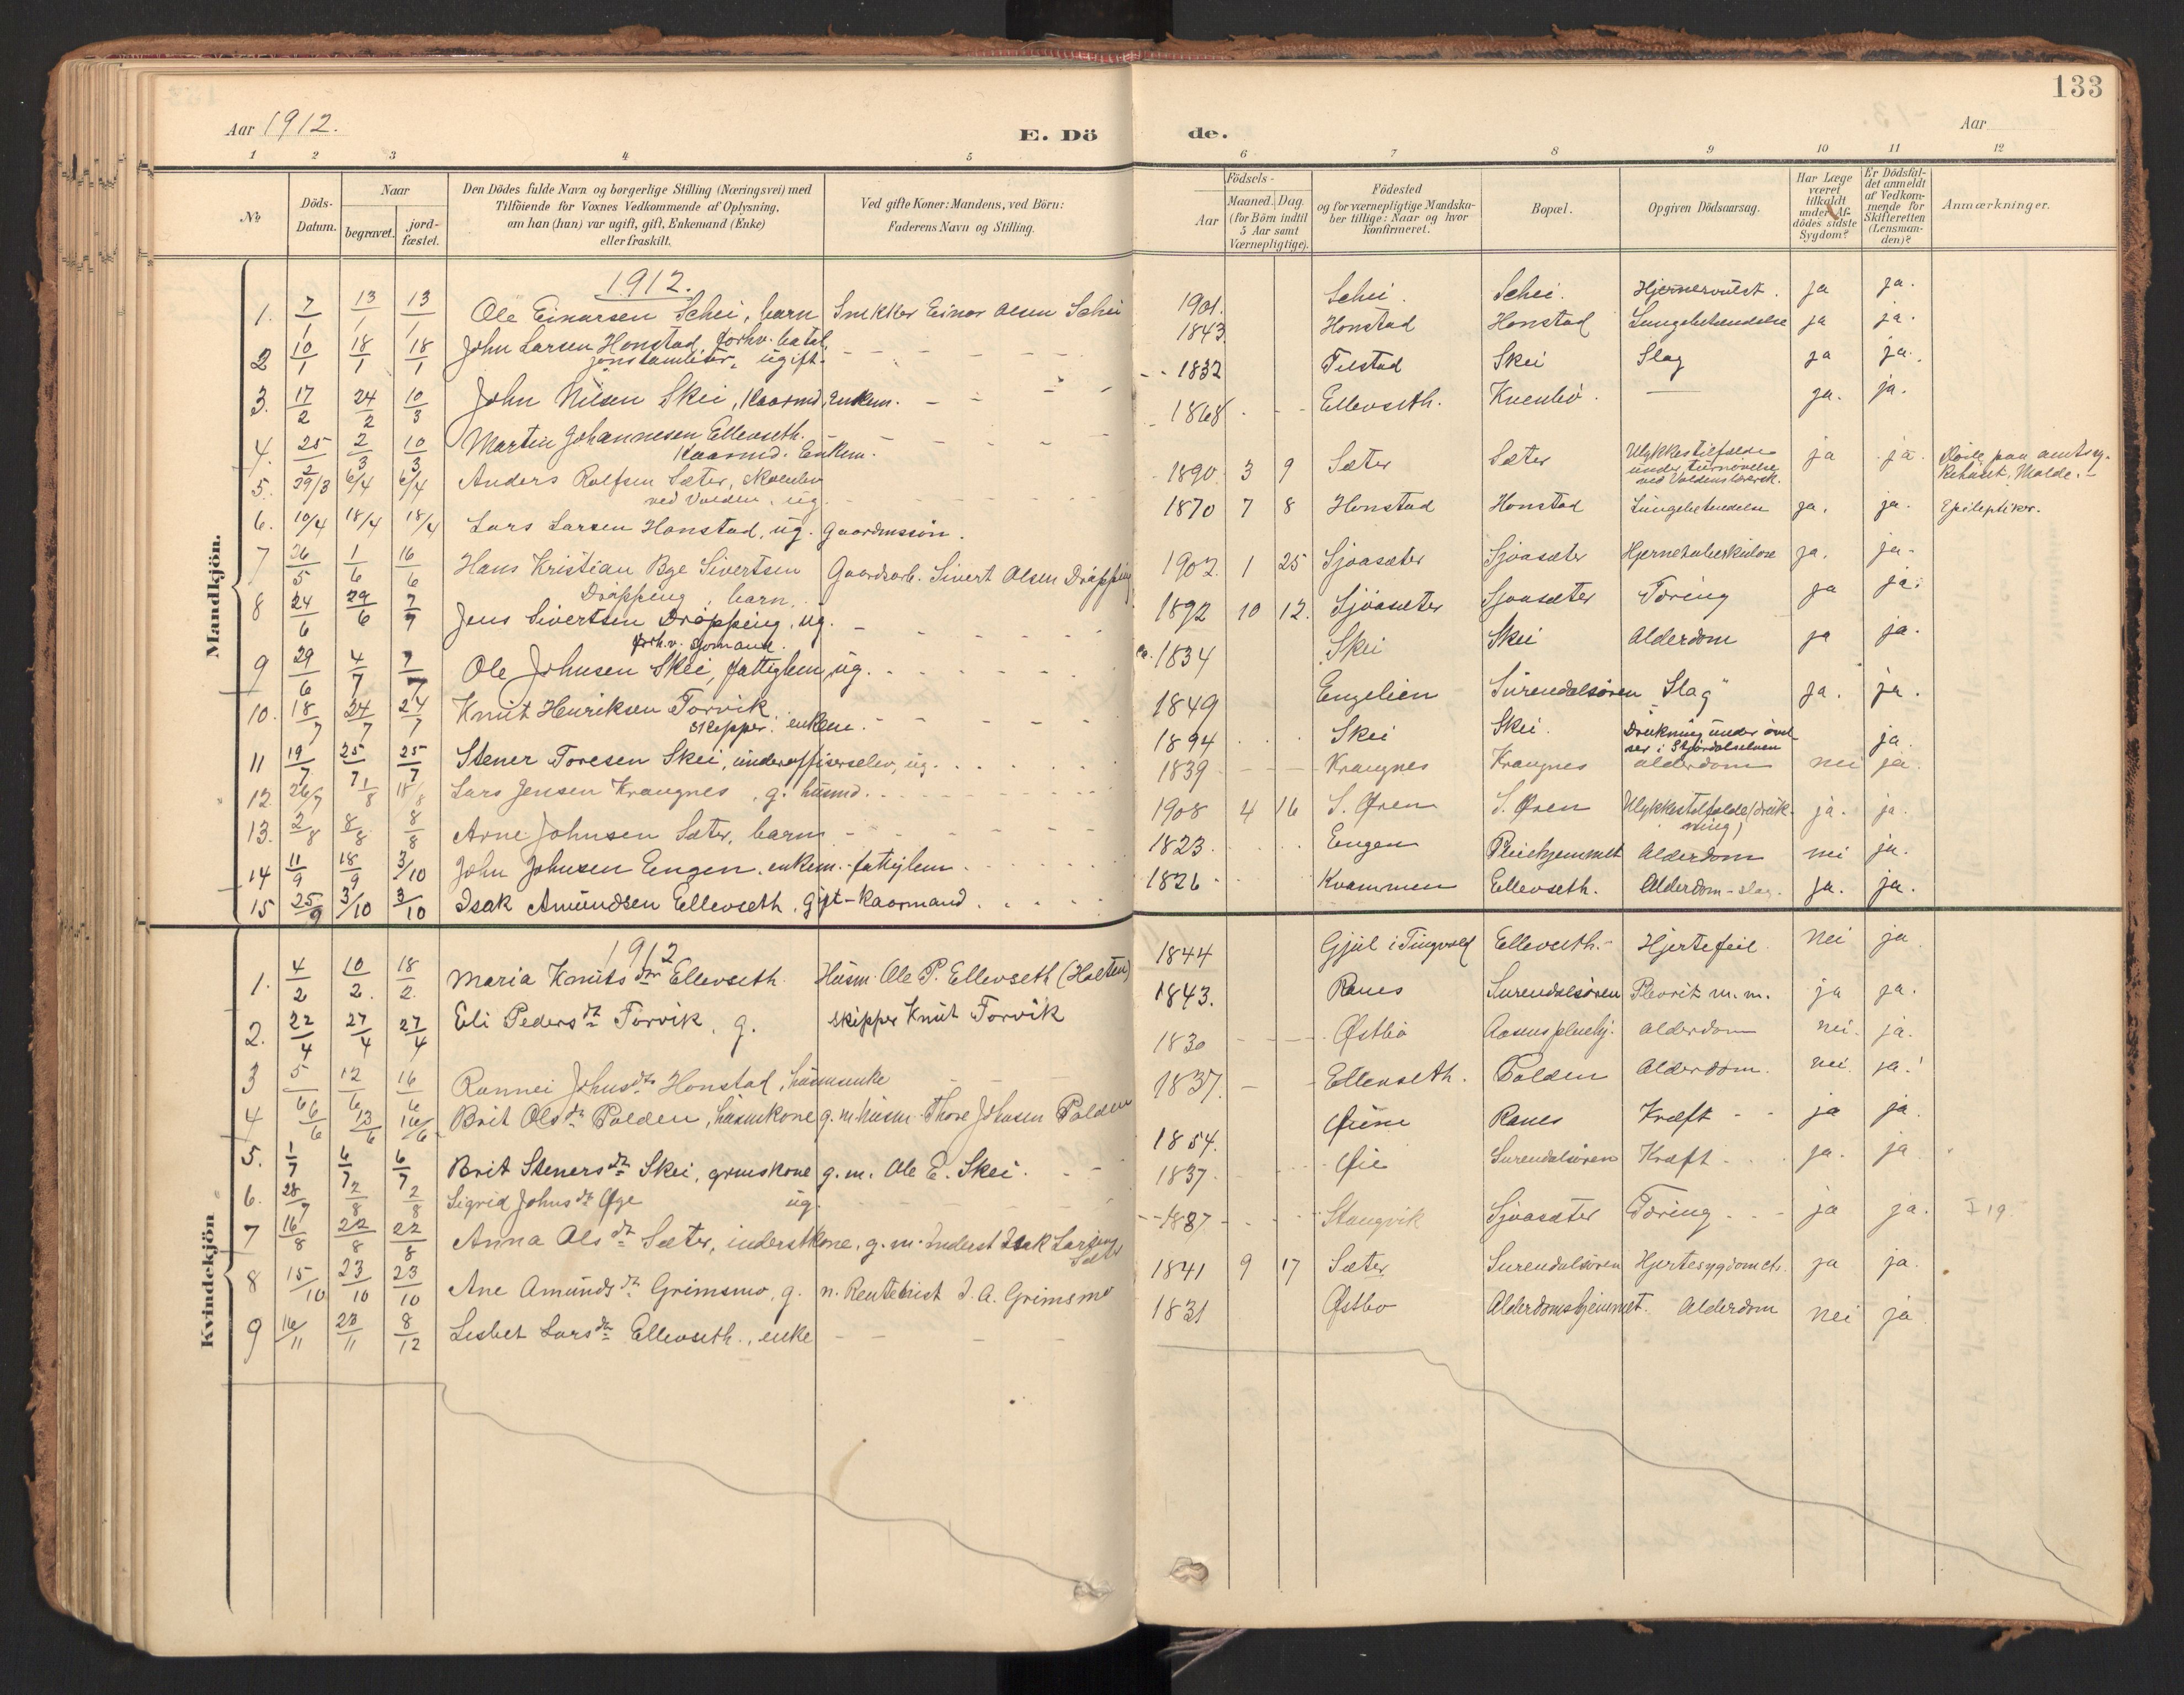 133
Aar 1912.
E. Döde.
Aar
1 2 3 4 5 6 7 8 9 10 11 12
No
Döds-Datum.
Naar
begravet.
jord-fæstet.
Den Dödes fulde Navn og borgerlige Stilling (Næringsvei) med
Tilföiende for Voxnes Vedkommende af Oplysning,
om han (hun) var ugift, gift, Enkemand (Enke)
eller fraskilt.
Ved gifte Koner: Mandens, ved Börn:
Faderens Navn og Stilling.
Födsels-
Aar
Maaned. Dag.
(for Börn indtil
5 Aar samt
Værnepligtige).
Födested
og for værnepligtige Mandska-
ber tillige: Naar og hvor
Konfirmeret.
Bopæl.
Opgiven Dödsaarsag.
Har Læge
været
tilkaldt
under Af-
dödes sidste
Sygdom?
Er Dödsfal-
det anmeldt
af Vedkom-
mende for
Skifteretten
(Lensman-
den)?
Anmærkninger.
Mandkjön.
1912.
1. 7/1 13/1 13/1 Ole Einarsen Schei, barn Snekker Einar Olsen Schei 1901. Schei. Schei. Hjernesvulst. ja ja.
2 10/1 18/1 18/1 John Larsen Honstad, forhv. batal. ugift. 1843 Honstad Honstad Lungebetændelse ja ja.
3. 17/2 24/2 10/3 John Nilsen Skei, Kaarmd, Enkem. 1832 Telstad Skei Slag ja ja.
4. 25/2 2/3 10/3 Martin Johannesen Ellevseth.
Kaarmd. Enkem. 1868 Ellevseth. Kvenbö. ja. ja.
5. 29/3 6/4 6/4 Anders Rolfsen Sæter, skoleelev
ved Volden, ug. 1890 3 9 Sæter Sæter Ulykkestilfælde
under turnövelse
ved ja ja. Döde paa amtssy-
kehuset, Molde.
6. 10/4 18/4 18/4 Lars Larsen Honstad, ug. gaardmssön. 1870 7 8 Honstad Honstad Lungebetændelse ja. ja. Epileptiker.
7 26/5 1/6 16/6 Hans Kristian Bye Sivertsen
Dröpping, barn. Gaardsarb. Sivert Olsen Dröpping 1902. 1 25 Sjöasæter Sjöasæter Hjernetuberkulose ja. ja.
8 24/6 29/6 7/7 Jens Sivertsen Dröpping, ug.
forhv. sjömand. 1892 10 12. Sjöasæter Sjöasæter Tæring ja ja.
9 29/6 4/7 7/7 Ole Johnsen Skei, fattiglem, ug. ca. 1834 Skei Skei Alderdom ja ja.
10. 18/7 24/7 24/7 Knut Henriksen Torvik
skipper. enkem. 1849 Engelien Surendalsören "Slag" ja. ja.
11 19/7 25/7 25/7 Stener Toresen Skei, underoffiserselev, ug. 1894 Skei Skei. Drukning under övel-
ser i Stjördalselven ja
12. 26/7 1/8 18/8 Lars Jensen Krangnes, g. husmd. 1839 Krangnes Krangnes alderdom nei ja.
13. 2/8 8/8 8/8 Arne Johnsen Sæter, barn 1908 4 16 S. Øren S. Øren Ulykkestilfælde (druk-
ning) ja. ja.
14 11/9 18/9 3/10 John Johnsen Engen, enkem. - fattiglem. 1823. Engen Pleiehjemmet Alderdom nei ja.
15 25/9 3/10 3/10 Isak Amundsen Ellevseth, gift - kaarmand. 1826 Kvammen Ellevseth. Alderdom - slag. ja. ja.
Kvindekjön
1912
1. 4/2 10/2. 18/2. Maria Knutsdtr Ellevseth. Husm. Ole P. Ellevseth (Halten) 1844 Gjul i Tingvold Ellevseth. Hjertefeil nei ja
2. 22/4 27/4 27/4 Eli Pedersdtr Torvik, g. skipper Knut Torvik 1843. Ranes Surendalsören Plevrit m.m. ja ja.
3 5/6 12/6 16/6 Rannei Johnsdtr Honstad, husmenke 1830 Østbö Aasens pleiehj. alderdom nei. ja.
4 6/6 13/6 16/6 Brit Olsdtr Polden, husmkone g. m. husm. Thore Johnsen Polden 1837. Ellevseth. Polden Alderdom. nei. ja.
5. 1/7 6/7 6/7 Brit Stenersdtr Skei, grmskone g. m. Ole E. Skei. 1854. Ranes Kræft ja ja.
6. 28/7 2/8 2/8 Sigrid Johnsdtr Øye ug. 1837. Øie Surendalsören Kræft ja. ja
7 16/8 22/8 22/8 Anna Olsdtr Sæter, inderstkone, g. m. Inderst Isak Larsen
Sæter 1887 Stangvik Sjöasæter Tæring ja ja. I 19.
8 15/10 23/10 23/10 Ane Amundsdtr Grimsmo, g. m. Rentenist I. A. Grimsmo 1841 9 17 Sæter Surendalsören Hjertesygdom etc. ja ja.
9 16/11 23/11 8/12 Lisbet Larsdtr Ellevseth., enke 1831 Østbö Alderdomshjemmet. Alderdom nei ja